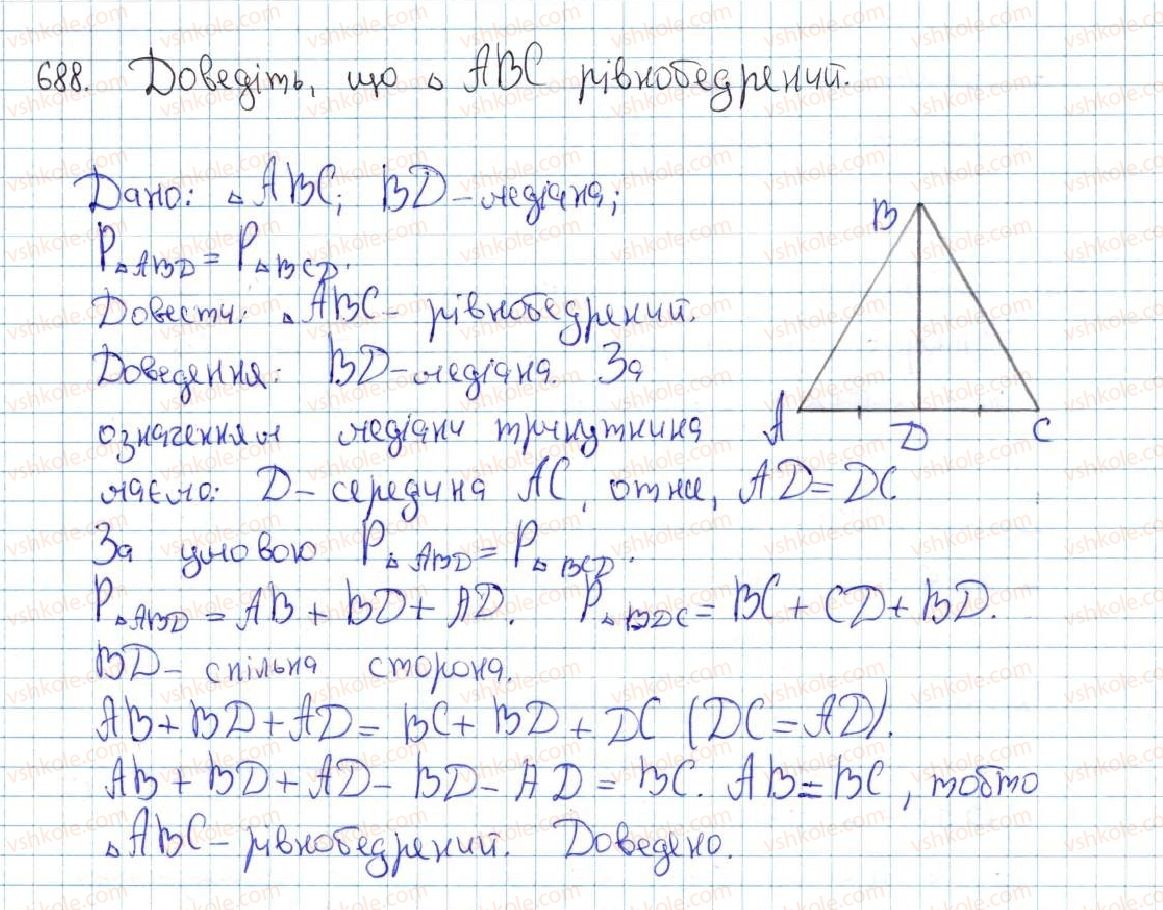 688. Доведіть, що △ ABC рівнобедрений.
Дано: △ ABC; BD – медіана;
P△ABD = P△BCD.
Довести: △ABC – рівнобедрений.
Доведення: BD – медіана. За
означенням медіани трикутника
маємо: D – середина AC, отже, AD = DC
За умовою P△ABD = P△BCD.
P△ABD = AB + BD + AD. P△BDC = BC + CD + BD.
BD – спільна сторона.
AB + BD + AD = BC + BD + DC (DC = AD).
AB + BD + AD – BD – AD = BC. AB = BC, тобто
△ABC – рівнобедрений. Доведено.
B
A
D
C
vshkole.com